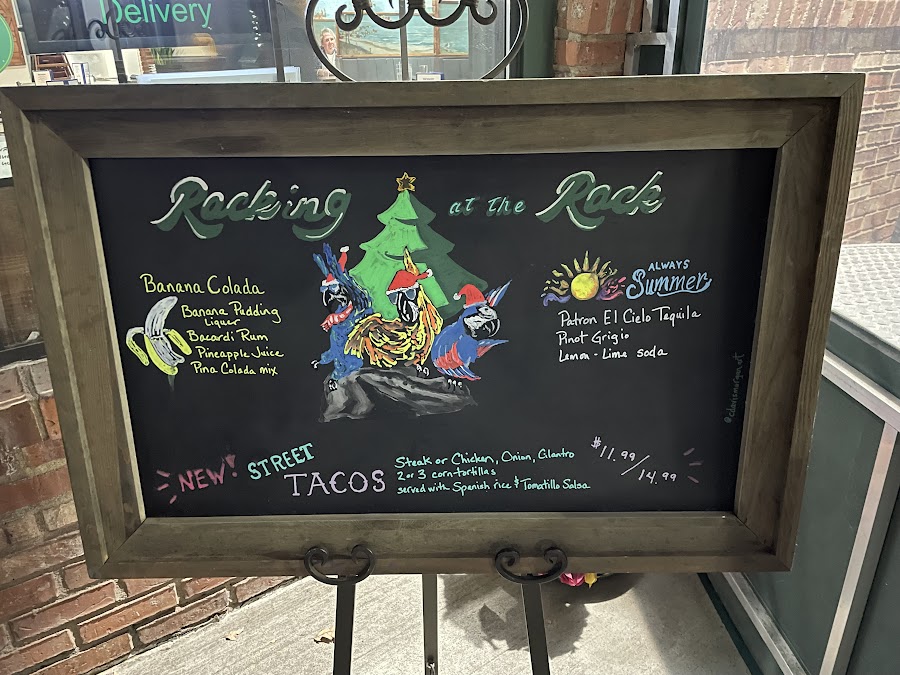 Delivery
Racking at the Rack
Banana Colada
Banana Pudding
Liquer
Bacardi Rum
Pineapple Juice
Pina Colada mix
ALWAYS
Summer
Patron El Cielo Tequila
Pinot Grigio
Lemon-Lime soda
NEW! STREET
TACOS
Steak or Chicken, Onion, Cilantro
2 or 3 corn-tortillas
served with Spanish rice & Tomatillo Salsa
$11.99/14.99